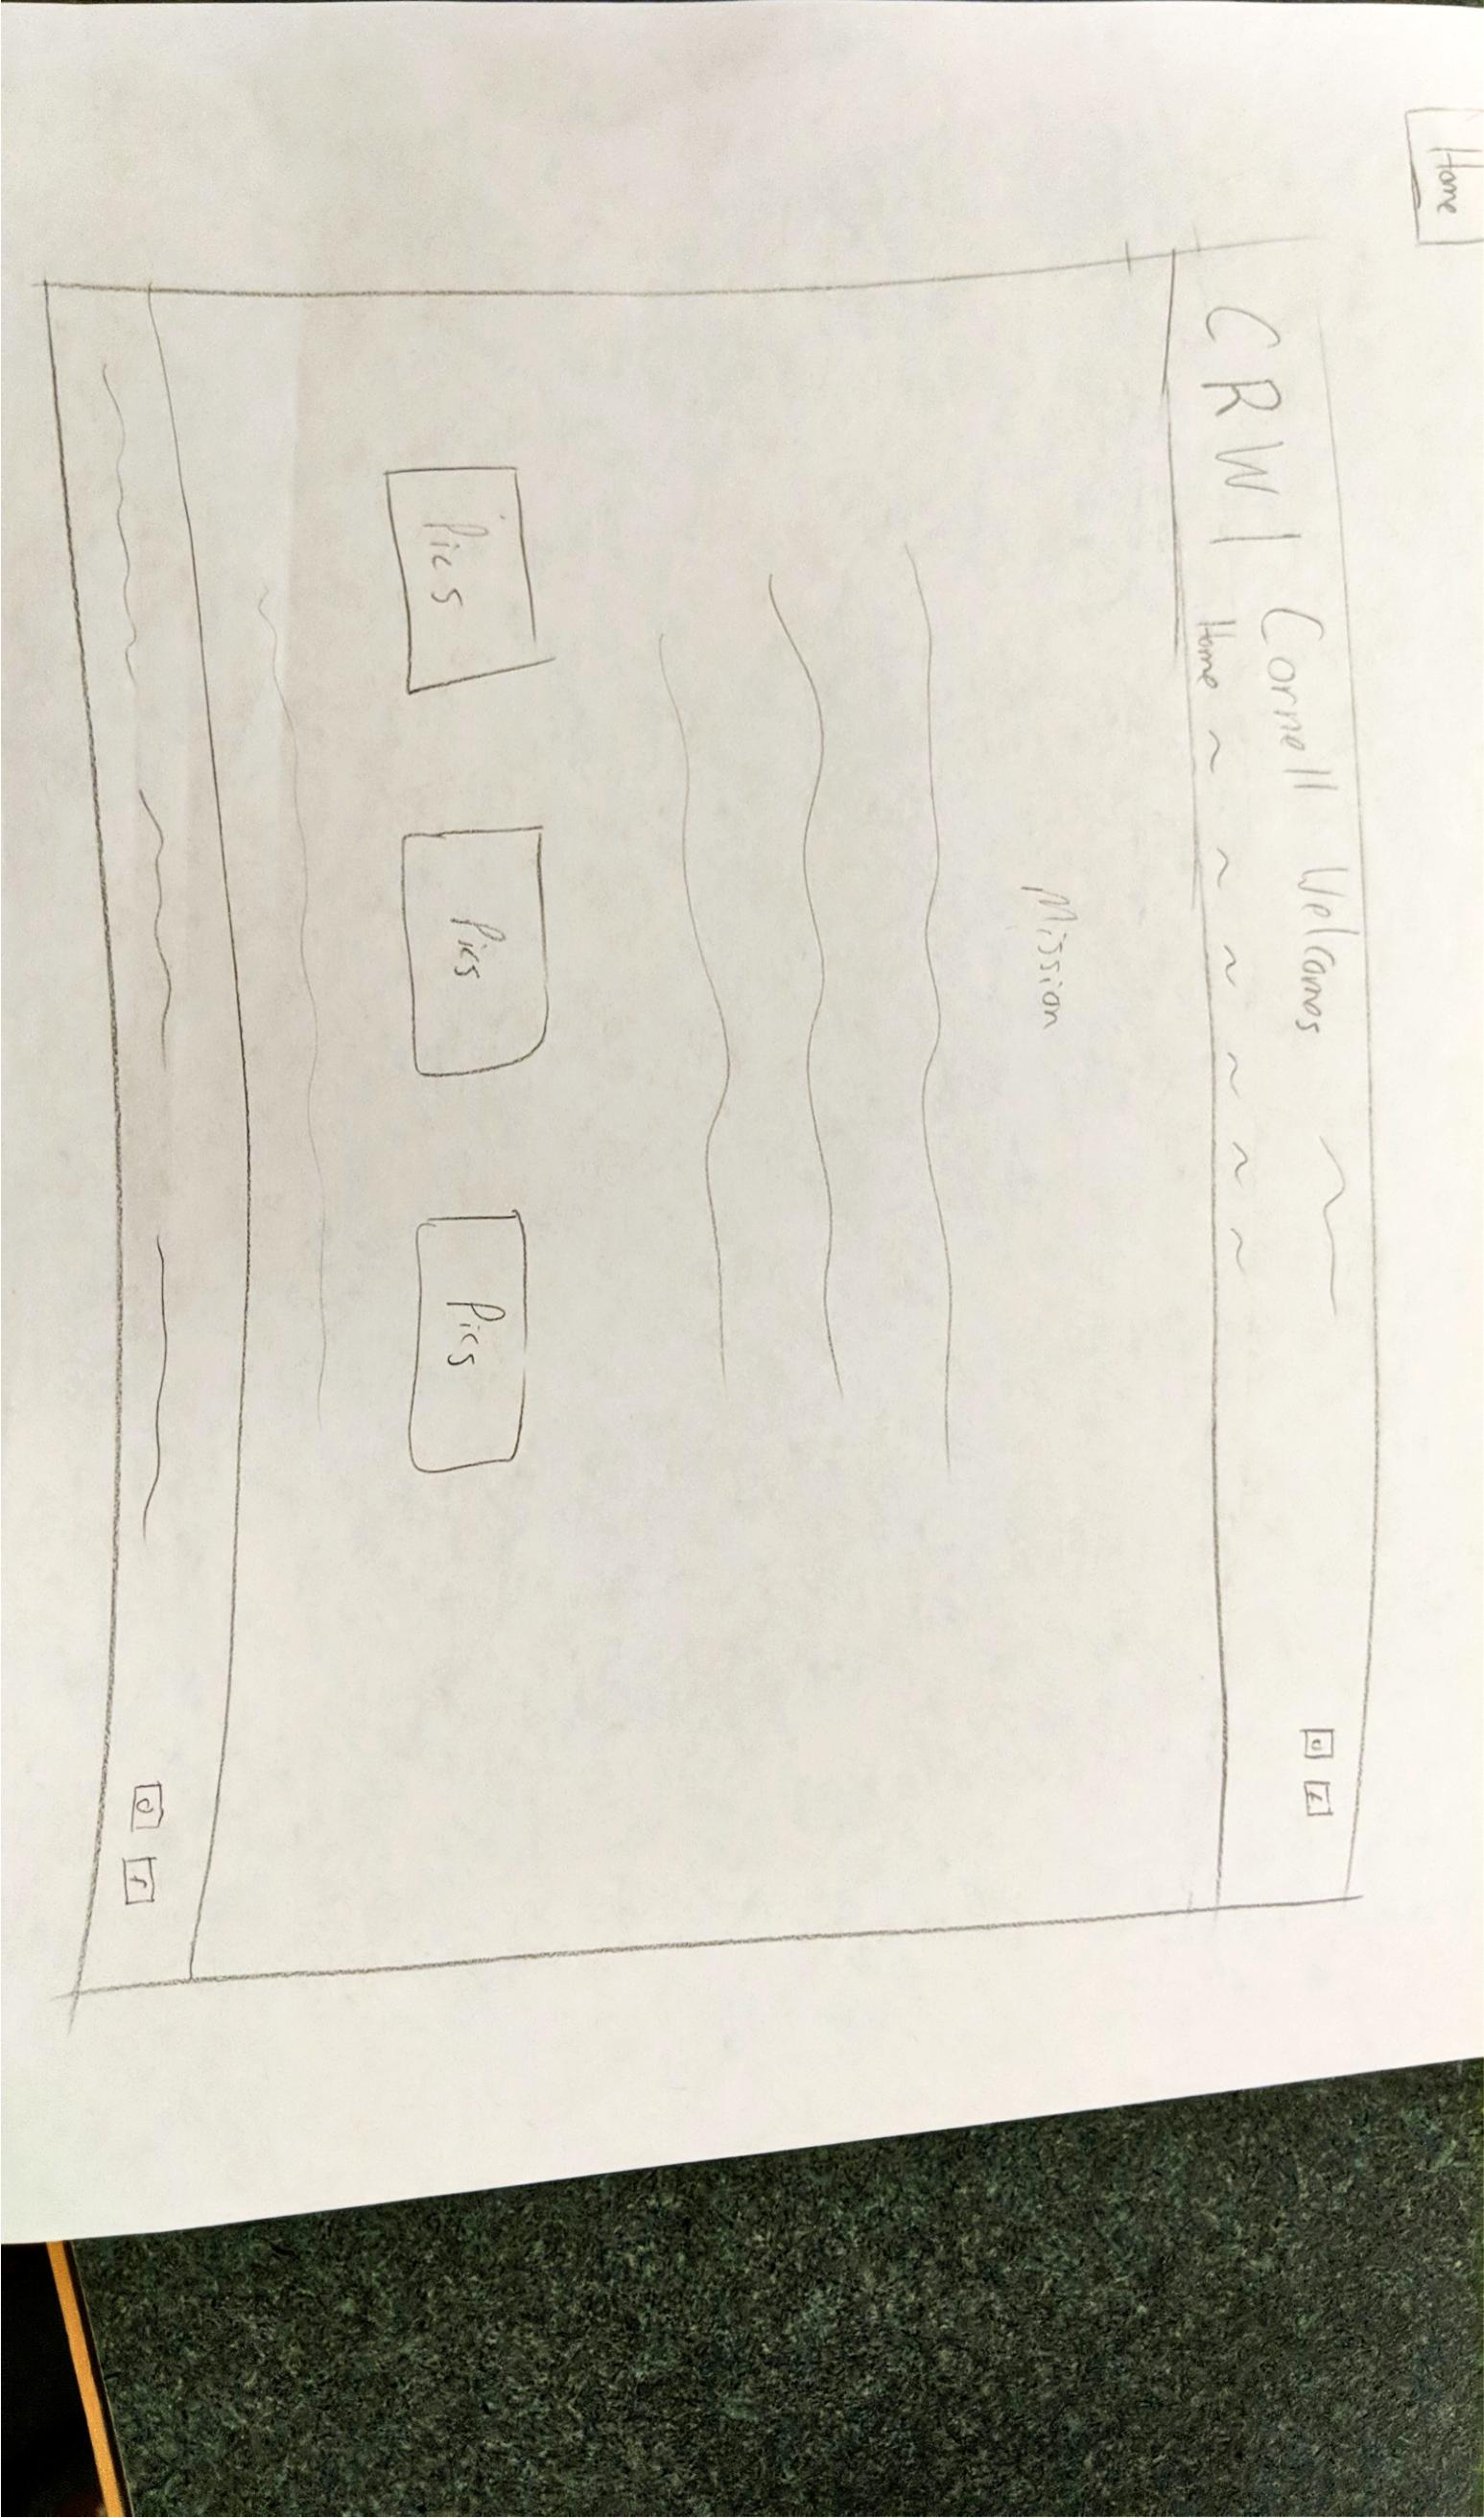 Home
CRW | Cornell Welcomes
Home
Mission
Pics Pics Pics